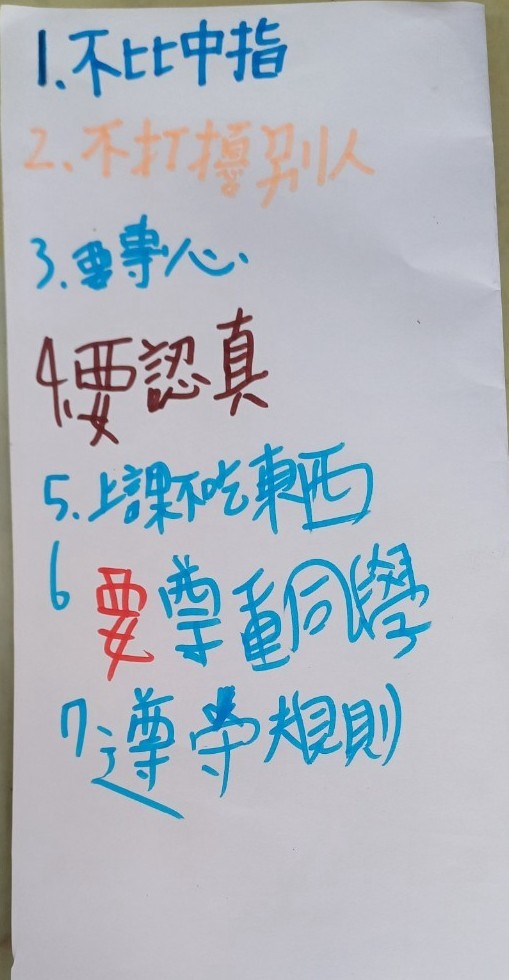 1.不比中指
2.不打擾別人
3.要專心
4.要認真
5.上課不吃東西
6 要尊重同學
7.遵守規則